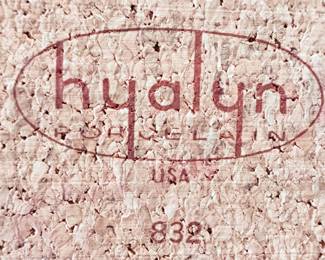 hyalyn
PORCELAIN
USA
832